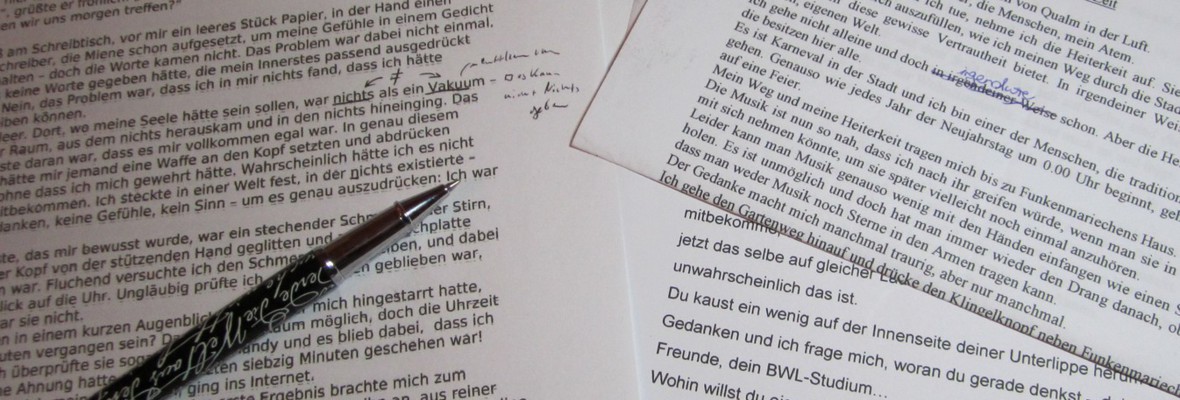 ", grüßte er fröhlich
en wir uns morgen treffen?"
ß am Schreibtisch, vor mir ein leeres Stück Papier, in der Hand einen
chreiber, die Miene schon aufgesetzt, um meine Gefühle in einem Gedicht
alten – doch die Worte kamen nicht. Das Problem war dabei nicht einmal,
keine Worte gegeben hätte, die mein Innerstes passend ausgedrückt
Nein, das Problem war, dass ich in mir nichts fand, dass ich hätte
iben können.
leer. Dort, wo meine Seele hätte sein sollen, war nichts als ein Vakuum –
r Raum, aus dem nichts herauskam und in den nichts hineinging. Das
ste daran war, dass es mir vollkommen egal war. In genau diesem
hätte mir jemand eine Waffe an den Kopf setzten und abdrücken
ohne dass ich mich gewehrt hätte. Wahrscheinlich hätte ich es nicht
itbekommen. Ich steckte in einer Welt fest, in der nichts existierte –
danken, keine Gefühle, kein Sinn – um es genau auszudrücken: Ich war
te, das mir bewusst wurde, war ein stechender der Stirn,
er Kopf von der stützenden Hand geglitten und chplatte
n war. Fluchend versuchte ich den ben, und dabei
lick auf die Uhr. Ungläubig prüfte ich n geblieben war,
ar sie nicht.
n in einem kurzen mich hingestarrt hatte,
uten vergangen sein? möglich, doch die Uhrzeit
h überprüfte sie andy und es blieb dabei, dass ich
e Ahnung hatte ten siebzig Minuten geschehen war!
ging ins Internet.
Ergebnis brachte mich zum
an, aus reiner
≠
nicht nichts
geben
die Welt aus
von Qualm in der Luft.
der, die Menschen, mein Atem.
ich tue, nehme ich die Heiterkeit auf. Sie
auszufüllen, wie ich meinen Weg durch die Stad
diese gewisse Vertrautheit bietet. In irgendeiner Wei
eigenen Welt.
ch gehe nicht alleine und doch in irgendeiner Weise schon. Aber die He
irgendwie
die besitzen hier alle.
Es ist Karneval in der Stadt und ich bin einer der Menschen, die tradition
gehen. Genauso wie jedes Jahr der Neujahrstag um 0.00 Uhr beginnt, geh
auf eine Feier.
Mein Weg und meine Heiterkeit tragen mich bis zu Funkenmariechens Haus.
Die Musik ist nun so nah, dass ich nach ihr greifen würde, wenn man sie in
mit sich nehmen könnte, um sie später vielleicht noch einmal anzuhören.
Leider kann man Musik genauso wenig mit den Händen einfangen wie einen S
holen. Es ist unmöglich und doch hat man immer wieder den Drang danach, ob
dass man weder Musik noch Sterne in den Armen tragen kann.
Der Gedanke macht mich manchmal traurig, aber nur manchmal.
Ich gehe den Gartenweg hinauf und drücke den Klingelknopf neben Funkenmariech
mitbekomme,
jetzt das selbe auf gleicher
unwahrscheinlich das ist.
Du kaust ein wenig auf der Innenseite deiner Unterlippe herum
Gedanken und ich frage mich, woran du gerade denkst –
Freunde, dein BWL-Studium…
Wohin willst du